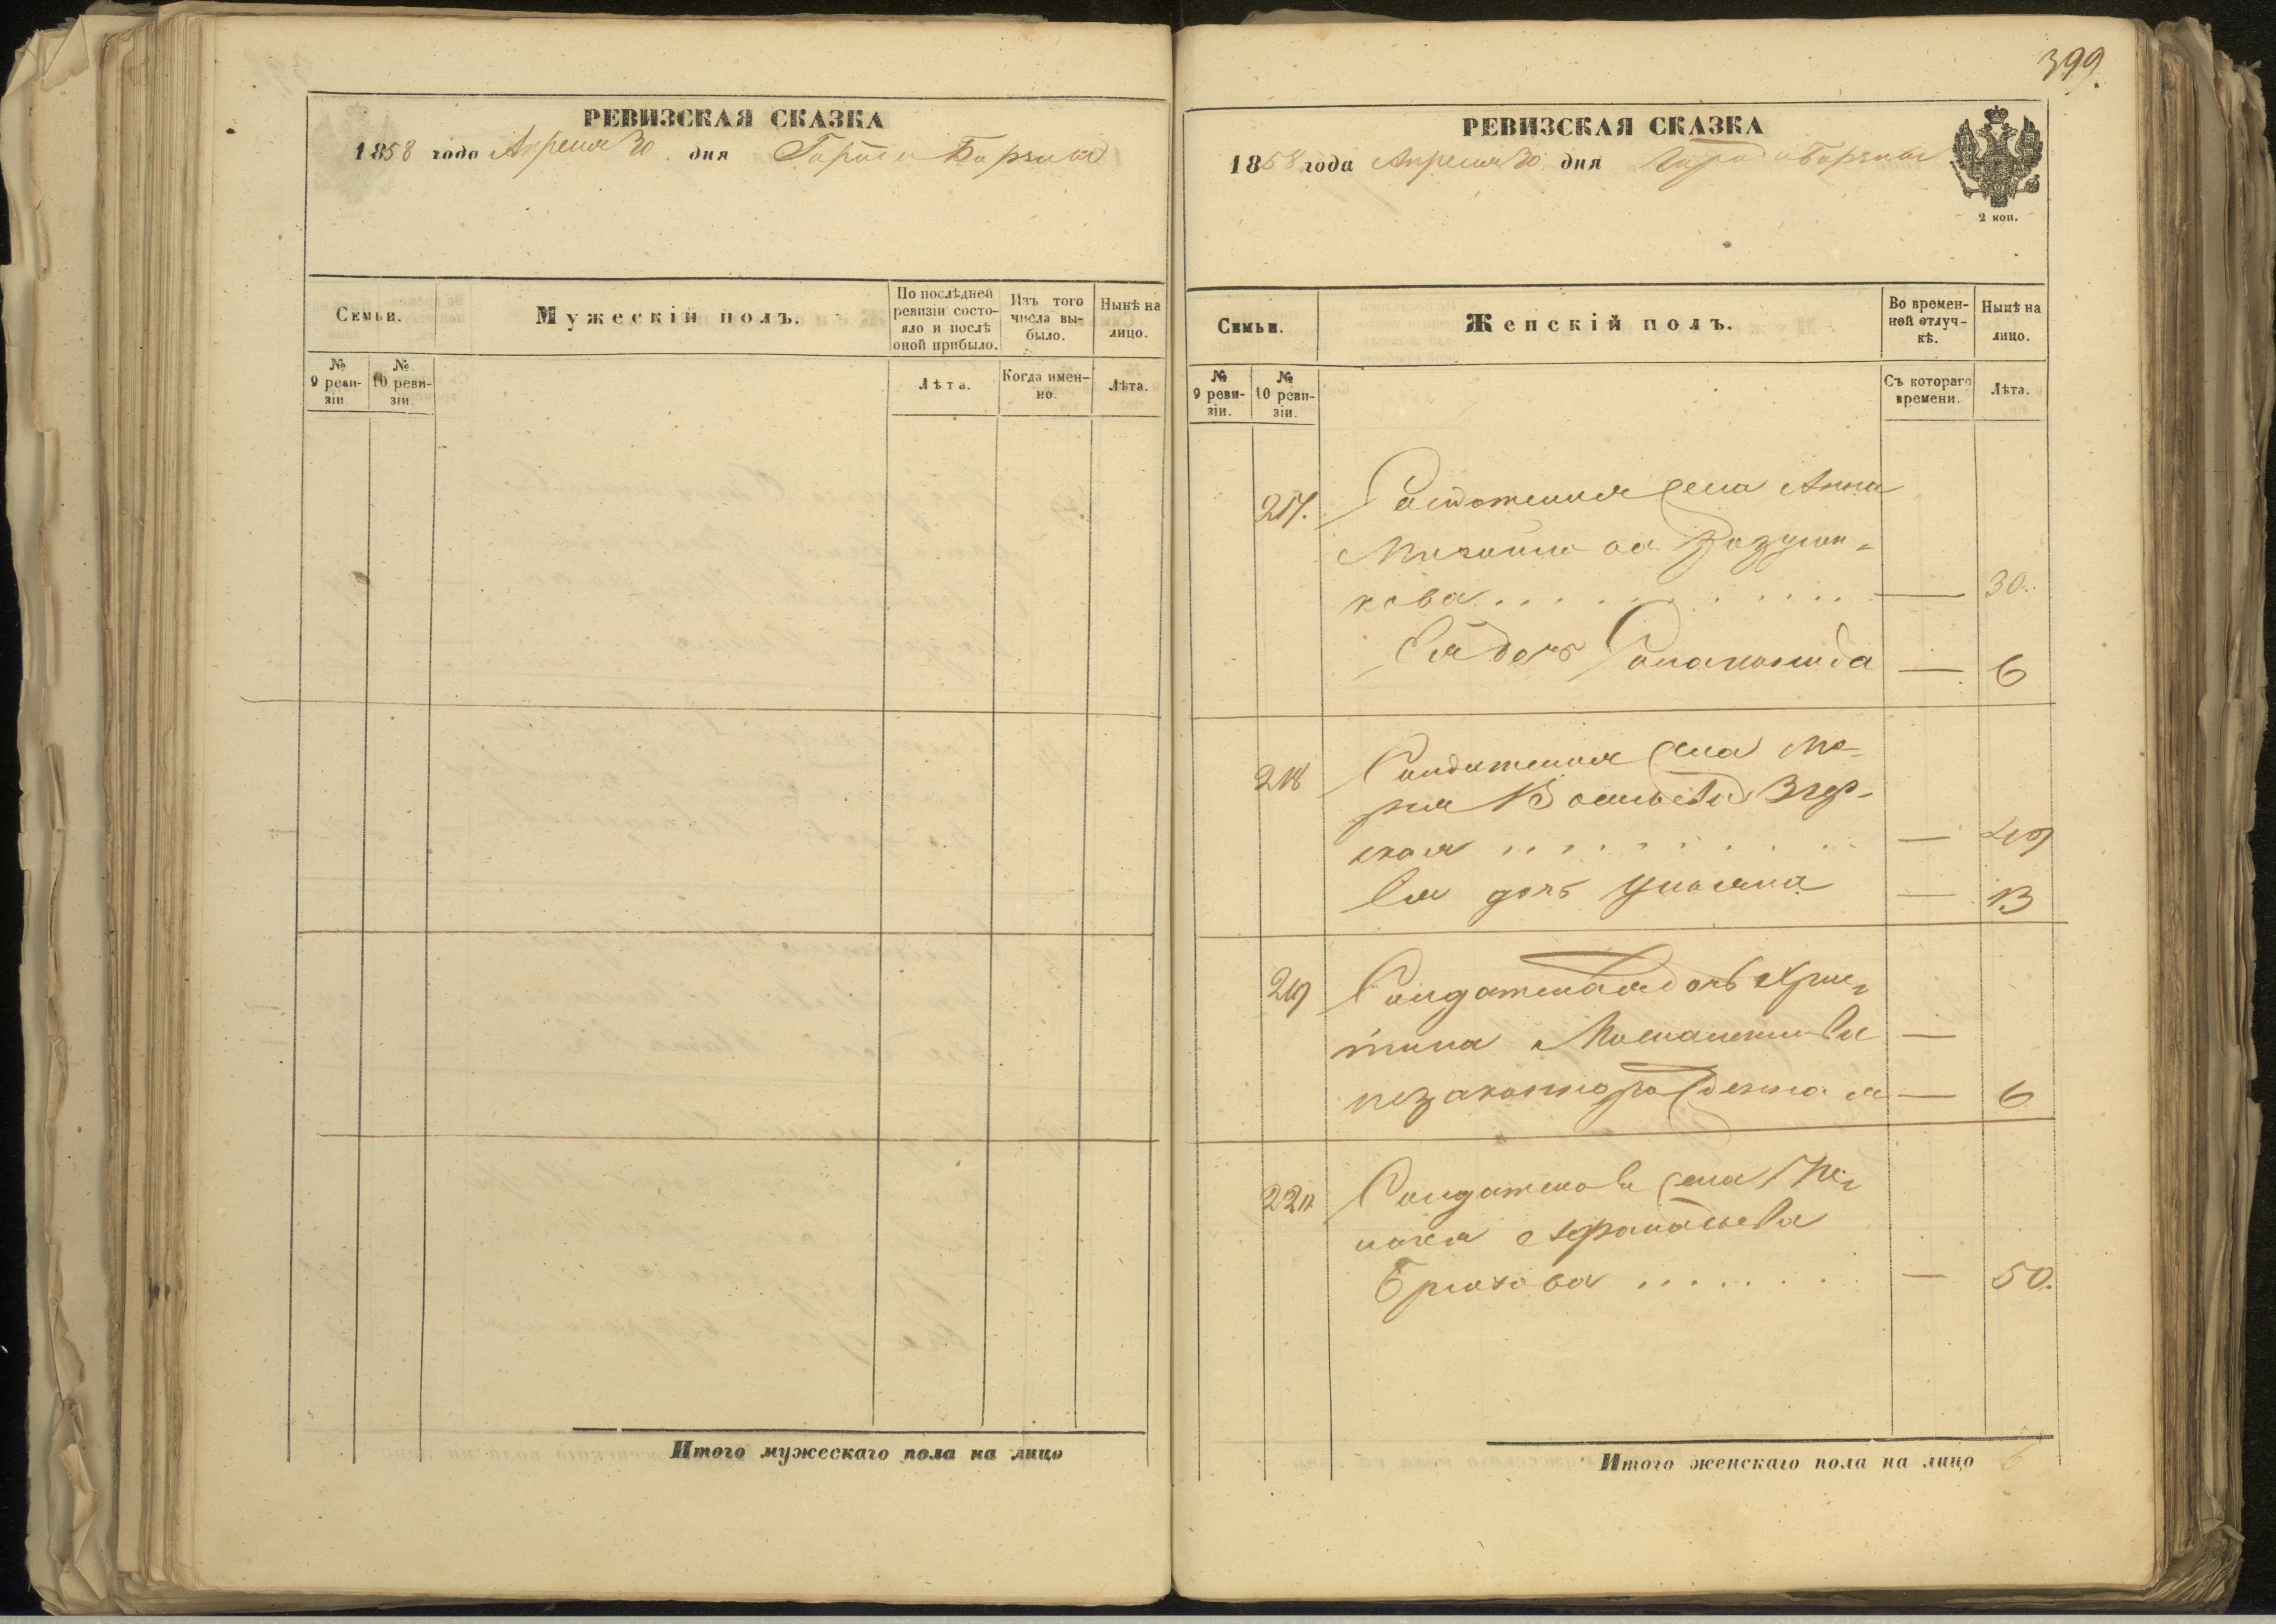 РЕВИЗСКАЯ СКАЗКА
1858 года Апреля 30 дня Города Борзны
Семьи.
Мужескій полъ.
По послѣдней ревизіи состояло и послѣ оной прибыло.
Изъ того числа выбыло.
Нынѣ на лицо.
№ 9 ревизіи.
№ 10 ревизіи.
Лѣта.
Когда именно.
Лѣта.
Итого мужескаго пола на лицо
399.
РЕВИЗСКАЯ СКАЗКА
1858 года Апреля 30 дня Города Борзны
2 коп.
Семьи.
Женскій полъ.
Во временной отлучкѣ.
Нынѣ на лицо.
№ 9 ревизіи.
№ 10 ревизіи.
Съ котораго времени.
Лѣта.
217. Анна
кова . . . . . . . . . . — 30.
Ея дочь — 6
218 Солдатская жена Ма-
рия Васильева Згур-
ская . . . . . . . . . — 49
Ея дочь Ульяна — 13
219 Солдатская дочь Хрис-
тина —
незаконнорожденная — 6
220 Солдатская жена Пе-
лагея Афанасьева
Брюхова . . . . . . . — 50.
Итого женскаго пола на лицо 6